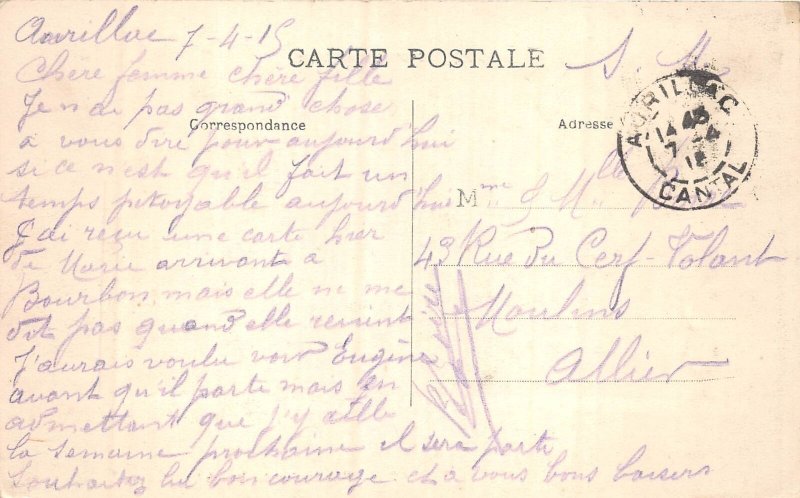 Aurillac 7-4-15
CARTE POSTALE
S. M
Chère femme chère fille
Je n ai pas grand chose
Correspondance
a vous dire pour aujourd'hui
si ce n'est qu'il fait un
temps pitoyable aujourd'hui
J'ai reçu une carte hier
de Marie arrivant a
Bourbon, mais elle ne me
dit pas quand elle revient
J'aurais voulu voir Eugène
avant qu'il parte mais en
admettant que j'y aille
la semaine prochaine il sera parti
Souhaitez lui bon courage et a vous bons baisers
Adresse
AURILLAC
14 45
7 -4
15
CANTAL
Mme & Mlle
43 Rue du Cerf-Volant
Moulins
Allier